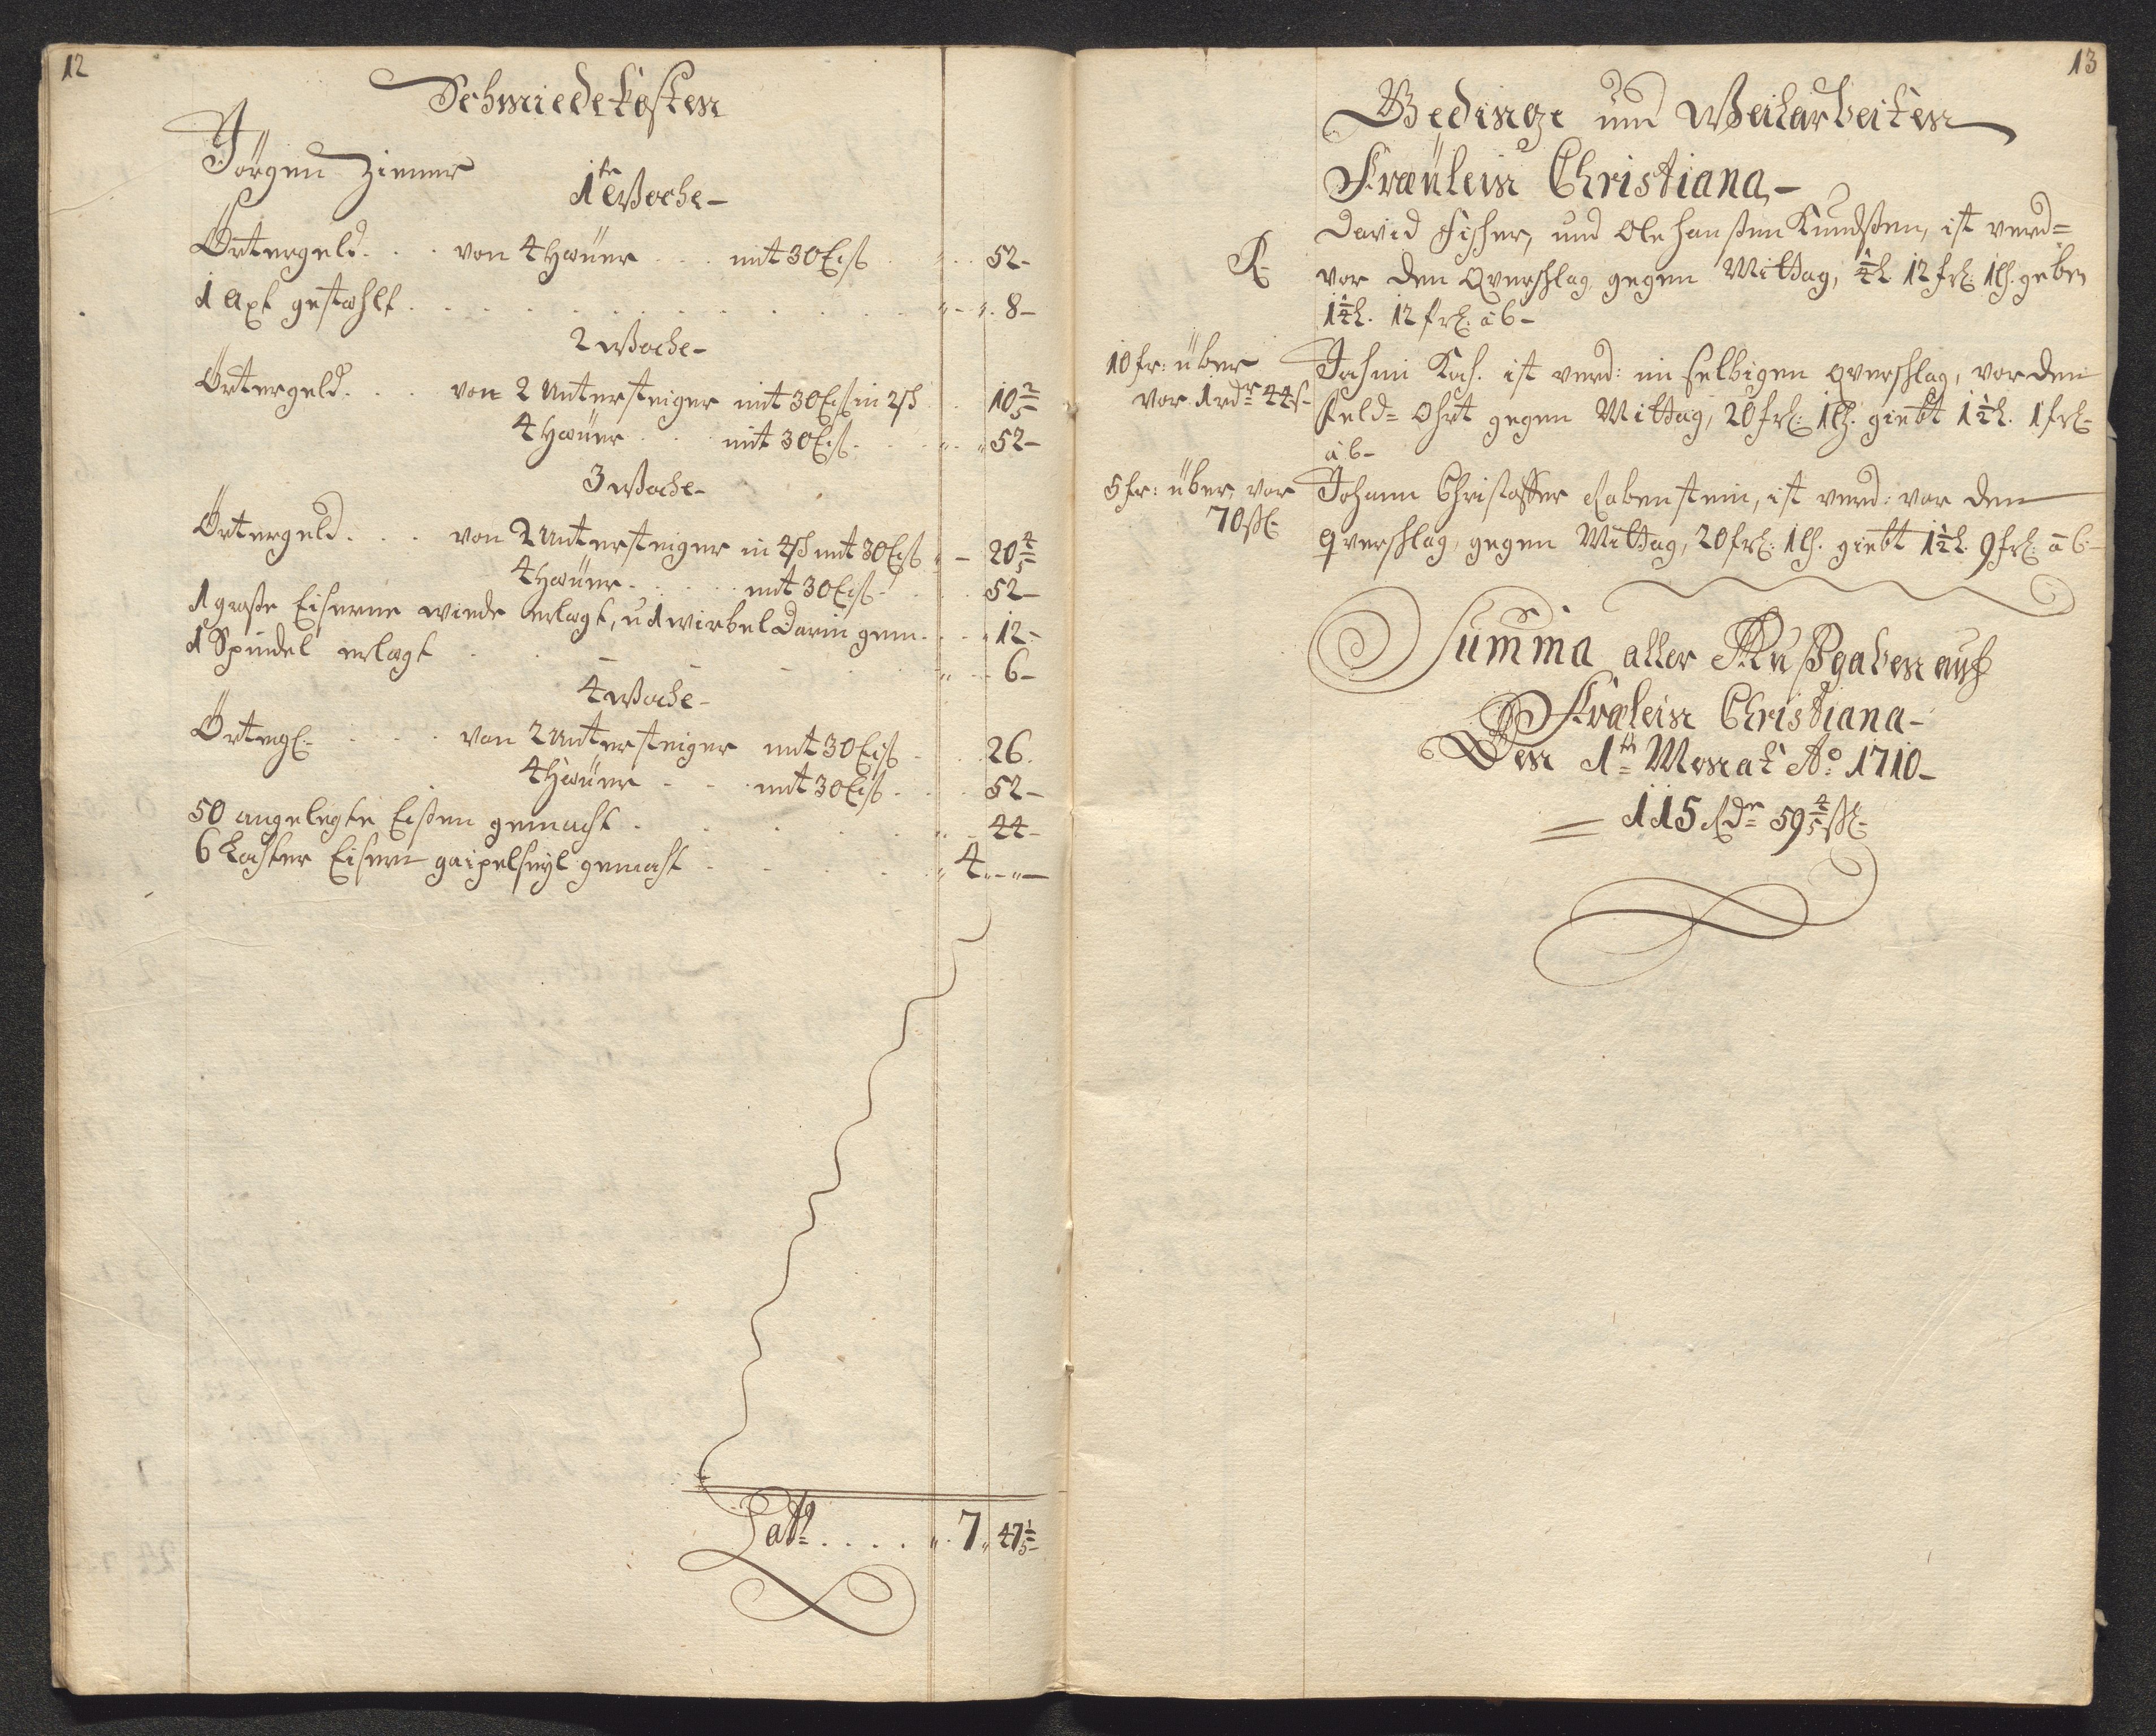 12
Schmiedekosten
Jörgen Ziener
1te Woche-
Örtergeld . . . von 4 Häuer . . . mit 30 Eiß . . . 52-
1 Axt gestählt . . . 8-
2 Woche-
Örtergeld . . . von 2 Untersteiger mit 30 Eiß in 2 sch . . 10 2/5
4 Häuer . . . mit 30 Eiß . . . 52-
3 Woche-
Örtergeld . . . von 2 Untersteiger in 4 sch mit 30 Eiß - 20 4/5
4 Häuer . . . mit 30 Eiß . . . 52-
1 große Eiserne winde erlegt, u 1 wirbel darin gem . . . 12-
1 Spindel erlegt . . . 6-
4 Woche-
Örtergl: . . . von 2 Untersteiger mit 30 Eiß . . . 26.
4 Häuer . . . mit 30 Eiß . . . 52-
50 angelegte Eißen gemacht . . . 44-
6 Lachter Eisern gaipelseyl gemacht . . . 4 . . -
Latt: . . . . 7 " 47 1/5
13
Gedinge und Weilarbeiten
Fræulein Christiana-
David Fischer, und Ole Hanßen Knudßen, ist verd=
vor den Qverschlag gegen Mittag, 1/4 L. 12 frl: 1 lh. geben
1 1/4 L. 12 frl: â 6-
10 fr: über
vor 1 rdr 44 ß-
Jochim Koch. ist verd: im selbigen Qverschlag, vor den
Feld= Ohrt gegen Mittag, 20 frl: 1 lh. giebt 1 1/2 L. 1 frl-
â 6-
5 fr: über, vor
70 ßl-
Johann Christoffer Rabenstein, ist verd: vor den
Qverschlag, gegen Mittag, 20 frl: 1 lh. giebt 1 1/2 L. 9 frl: â 6-
Summa aller Außgaben auf
Frælein Christiana-
Den 1th Monat Ao 1710-
= 115 Rdr 59 4/5 ßl-